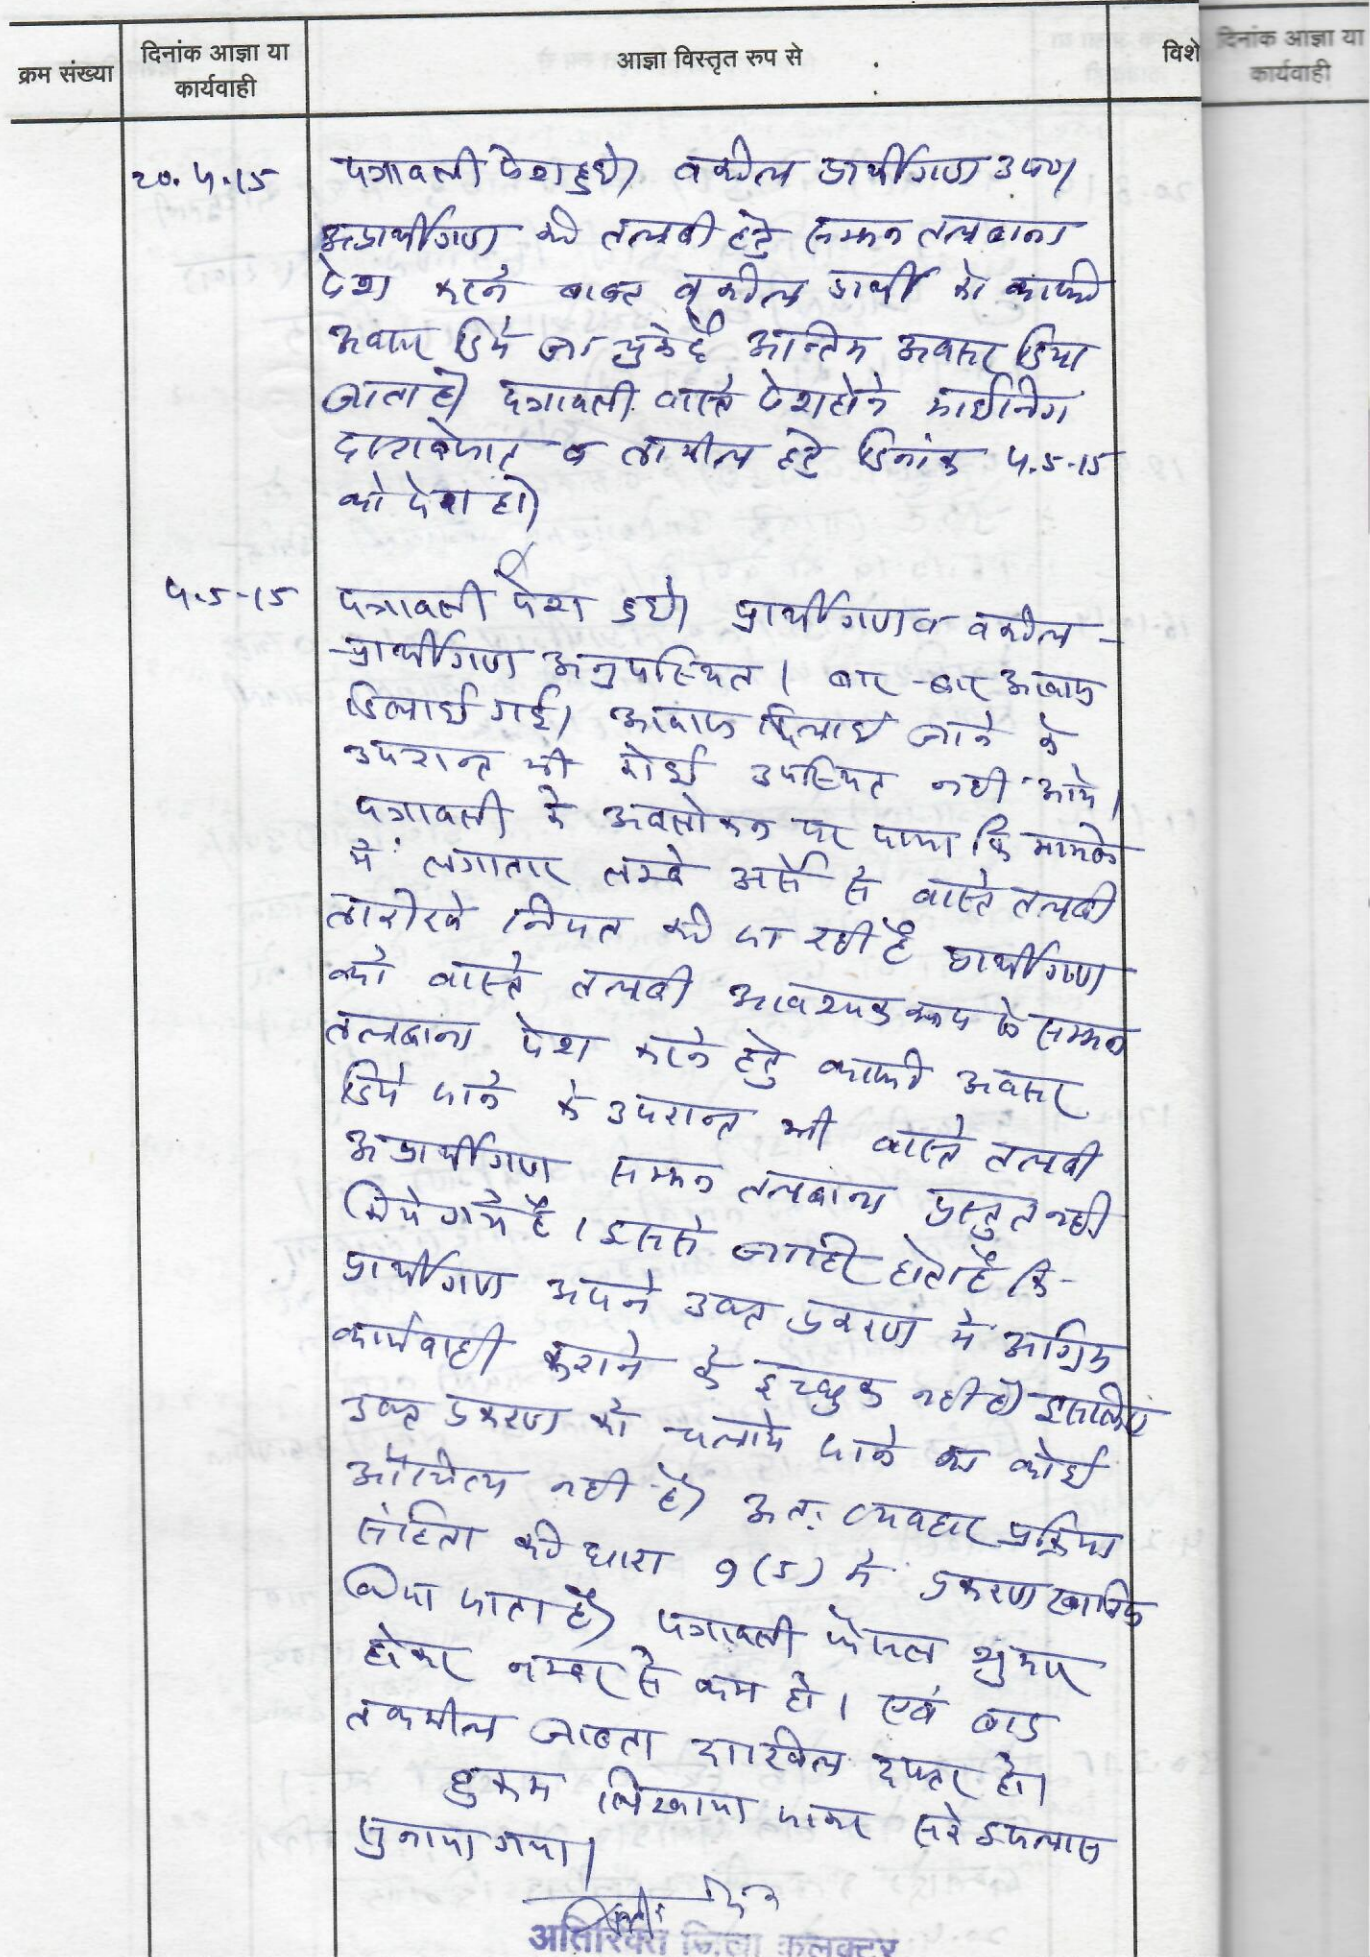 क्रम संख्या
दिनांक आज्ञा या
कार्यवाही
आज्ञा विस्तृत रुप से
विशे
दिनांक आज्ञा या
कार्यवाही
20.4.15
पत्रावली पेश हुयी। वकील प्रार्थीगण उप०।
अप्रार्थीगण की तलबी हेतु सम्मन तलबाना
पेश करने बाबत वकील प्रार्थी को काफी
अवसर दिये जा चुके है अन्तिम अवसर दिया
जाता है। पत्रावली वास्ते पेश होने
व तामील हेतु दिनांक 4.5-15
को पेश हो।
4.5-15
पत्रावली पेश हुयी। प्रार्थीगण व वकील -
प्रार्थीगण अनुपस्थित। बार-बार आवाज
दिलाई गई। आवाज दिलाई जाने के
उपरान्त भी कोई उपस्थित नही आये।
पत्रावली के अवलोकन पर पाया कि मामले
में लगातार लम्बे अर्से से वास्ते तलबी
तारीखे नियत की जा रही है प्रार्थीगण
को वास्ते तलबी आवश्यक रूप से सम्मन
तलबाना पेश करने हेतु काफी अवसर
दिये जाने के उपरान्त भी वास्ते तलबी
अप्रार्थीगण सम्मन तलबाना प्रस्तुत नही
किये गये है। इससे जाहिर होता है कि-
प्रार्थीगण अपने उक्त प्रकरण में अग्रिम
कार्यवाही कराने के इच्छुक नही है। इसलिए
उक्त प्रकरण को चलाये जाने का कोई
औचित्य नही है। अतः व्यवहार प्रक्रिया
संहिता की धारा 9(5) में प्रकरण खारिज
किया जाता है। पत्रावली फैसल शुमार
होकर नम्बर से कम हो। एवं बाद
तकमील जाब्ता दाखिल दफ्तर हो।
हुकम लिखाया जाकर सरे इजलास
सुनाया गया।
अतिरिक्त जिला कलक्टर